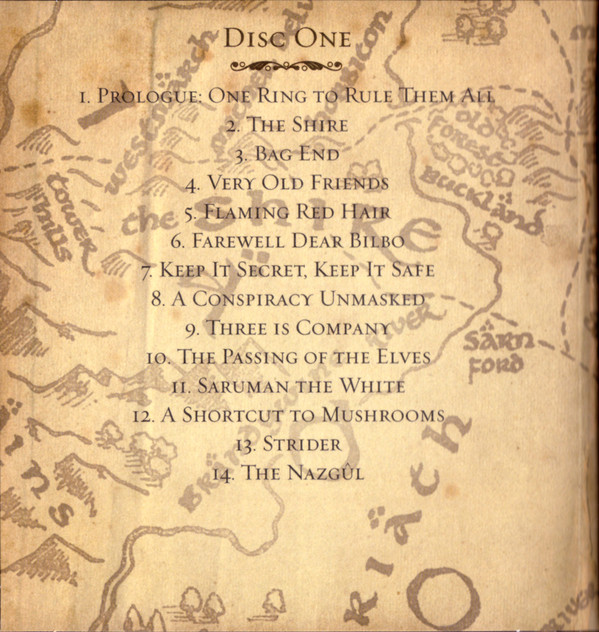 Disc One
1. Prologue: One Ring to Rule Them All
2. The Shire
3. Bag End
4. Very Old Friends
5. Flaming Red Hair
6. Farewell Dear Bilbo
7. Keep It Secret, Keep It Safe
8. A Conspiracy Unmasked
9. Three is Company
10. The Passing of the Elves
11. Saruman the White
12. A Shortcut to Mushrooms
13. Strider
14. The Nazgûl
westmarch
tower
hills
the Shire
old
forest
Buckland
Särn
ford
river
riäth